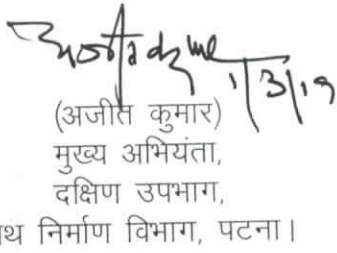 1/3/19
(अजीत कुमार)
मुख्य अभियंता,
दक्षिण उपभाग,
थ निर्माण विभाग, पटना।